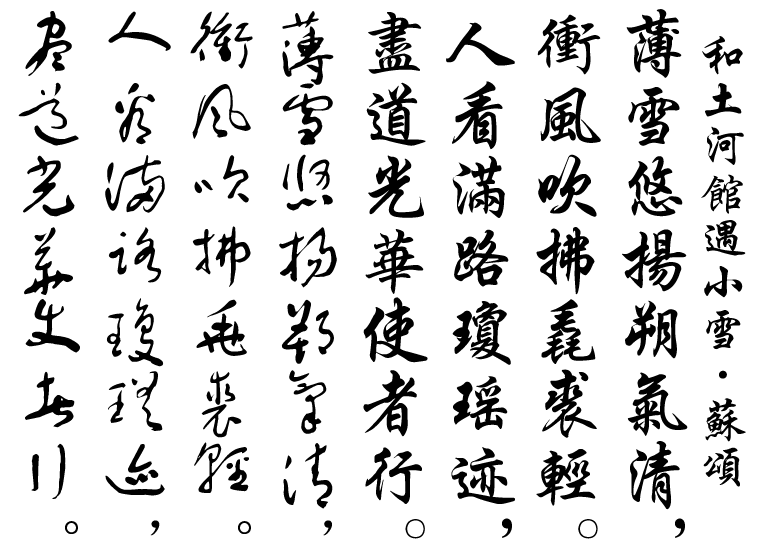 和土河館遇小雪・蘇頌
薄雪悠揚朔氣清，
衝風吹拂毳裘輕。
人看滿路瓊瑶迹，
盡道光華使者行。
薄雪悠揚朔氣清，
衝風吹拂毳裘輕。
人看滿路瓊瑶迹，
盡道光華使者行。